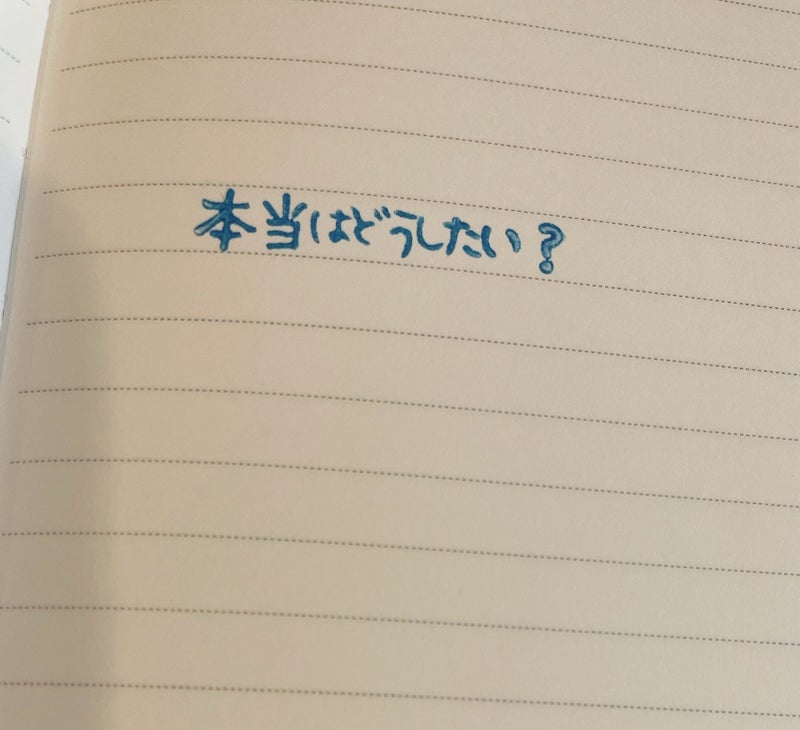 本当はどうしたい?